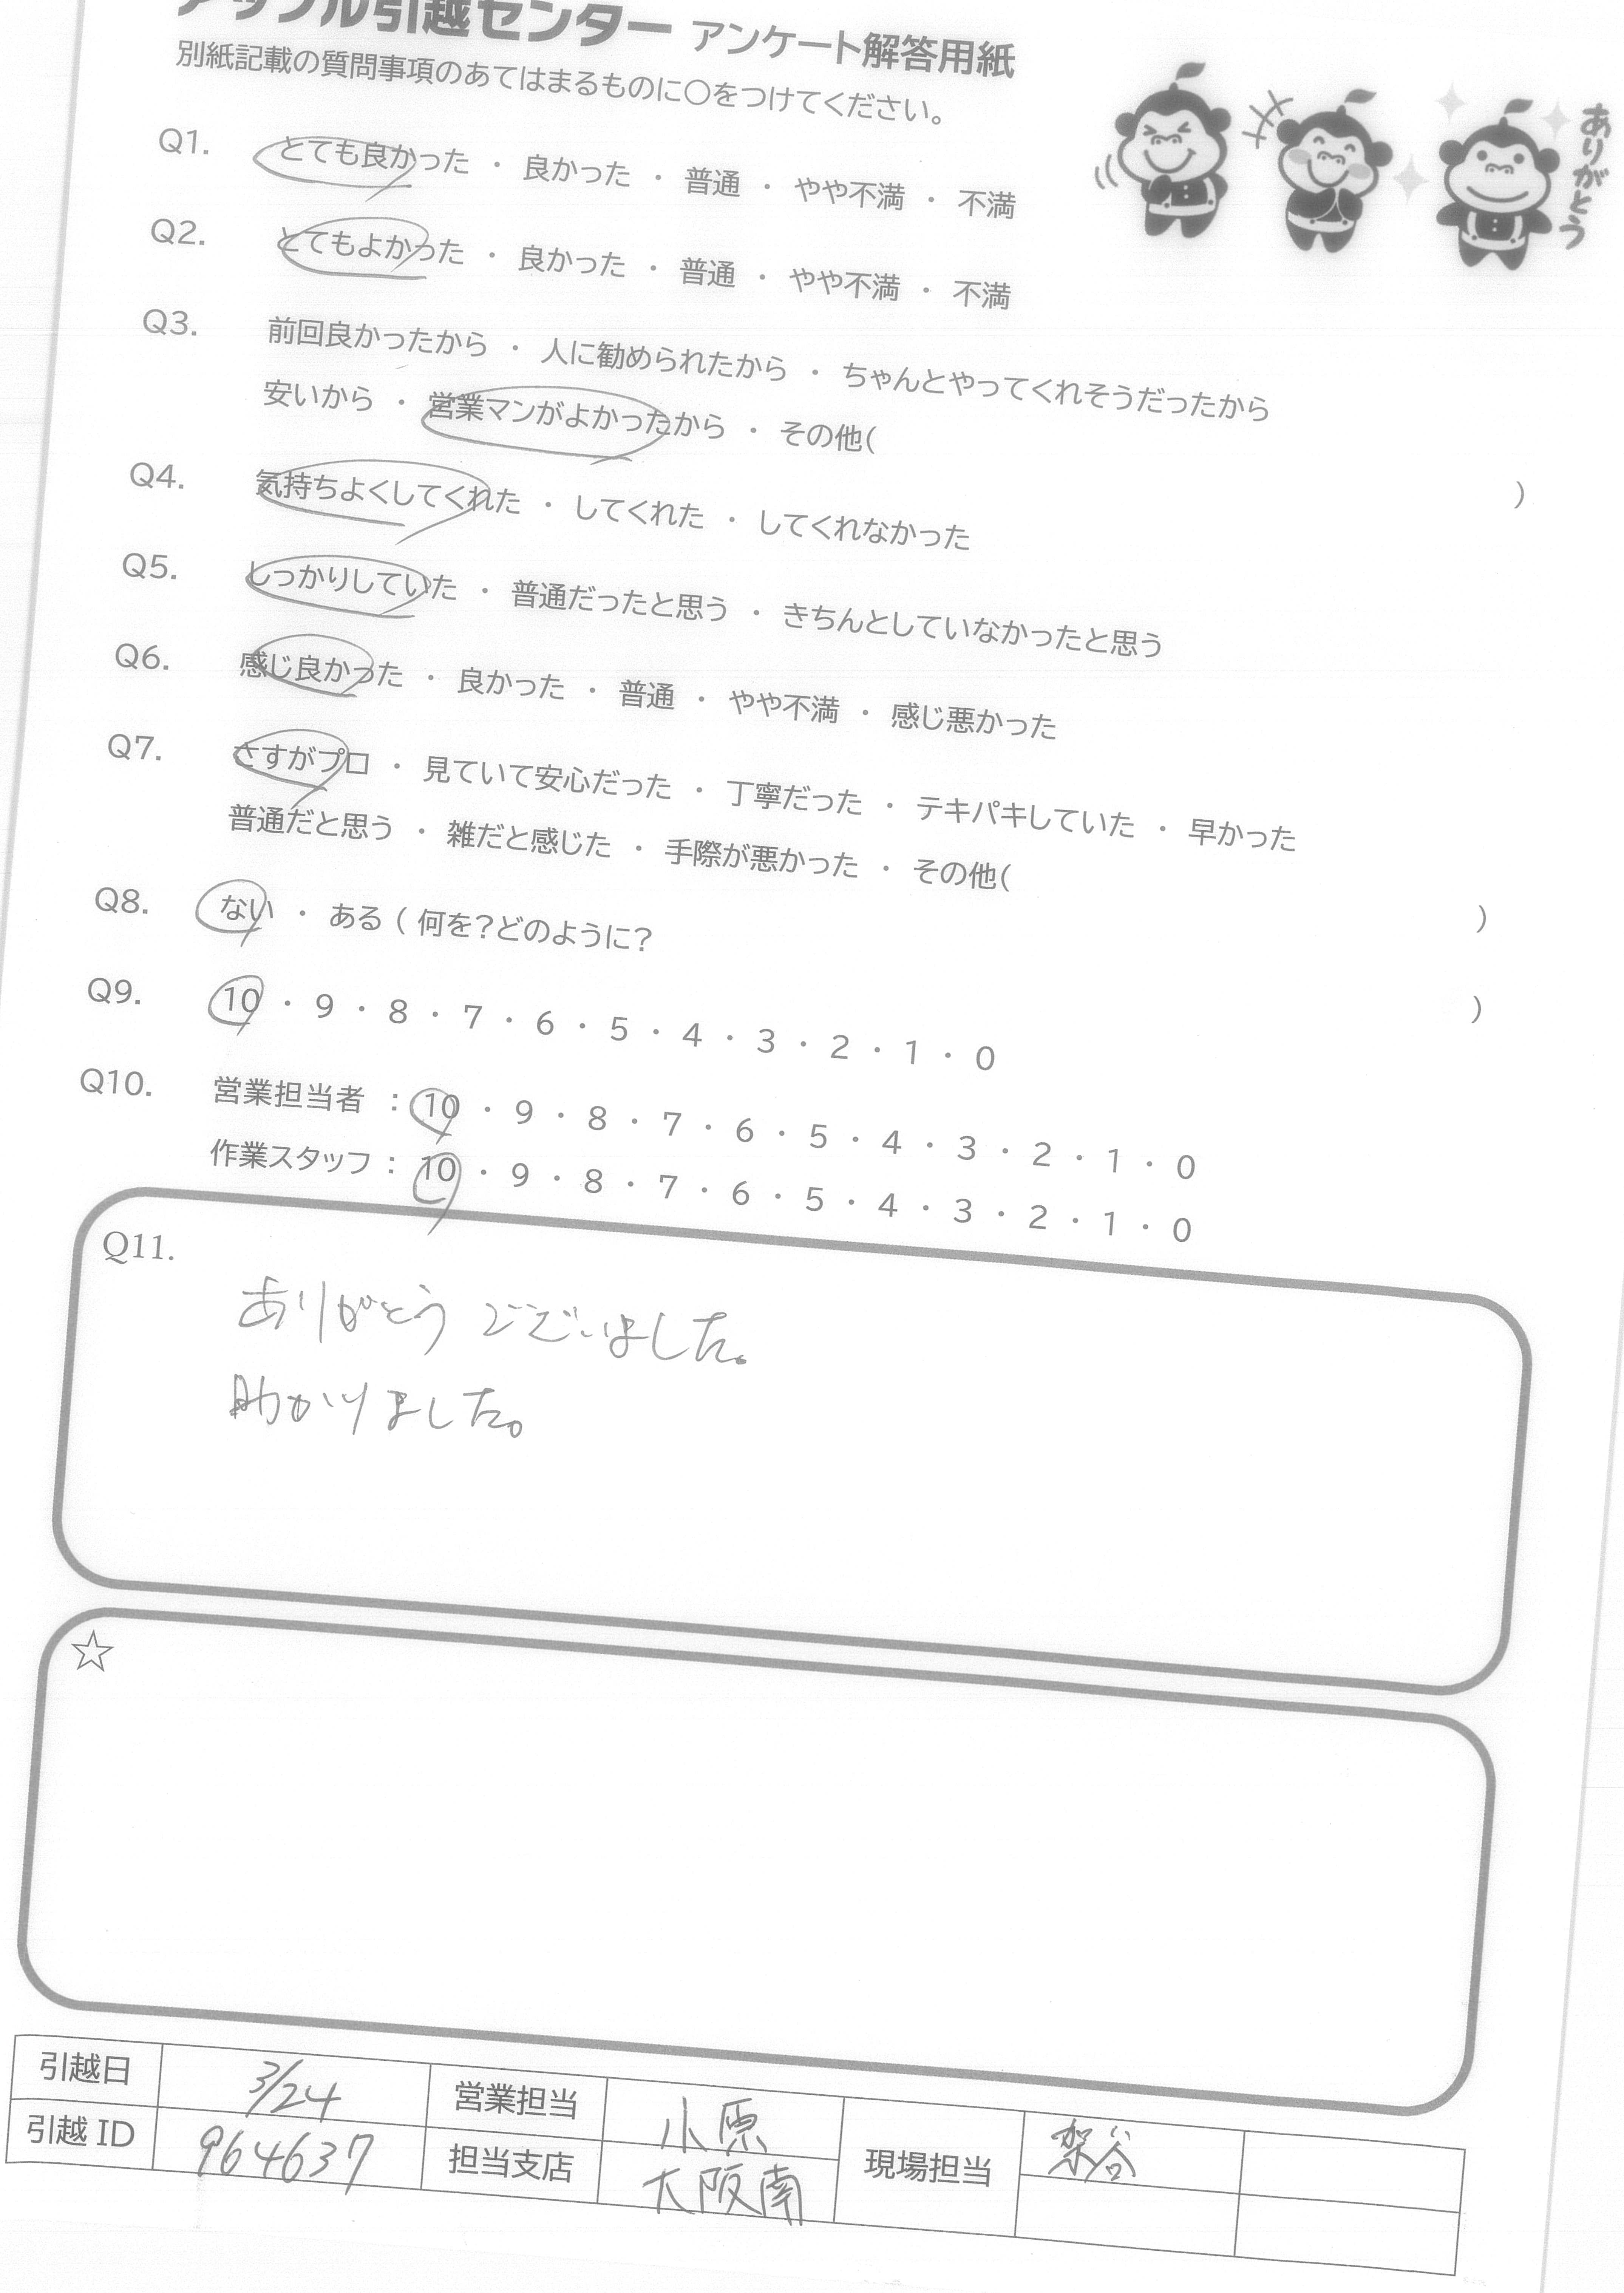 アップル引越センター アンケート解答用紙
別紙記載の質問事項のあてはまるものに○をつけてください。
ありがとう
Q1. とても良かった ・ 良かった ・ 普通 ・ やや不満 ・ 不満
Q2. とてもよかった ・ 良かった ・ 普通 ・ やや不満 ・ 不満
Q3. 前回良かったから ・ 人に勧められたから ・ ちゃんとやってくれそうだったから
安いから ・ 営業マンがよかったから ・ その他( )
Q4. 気持ちよくしてくれた ・ してくれた ・ してくれなかった
Q5. しっかりしていた ・ 普通だったと思う ・ きちんとしていなかったと思う
Q6. 感じ良かった ・ 良かった ・ 普通 ・ やや不満 ・ 感じ悪かった
Q7. さすがプロ ・ 見ていて安心だった ・ 丁寧だった ・ テキパキしていた ・ 早かった
普通だと思う ・ 雑だと感じた ・ 手際が悪かった ・ その他( )
Q8. ない ・ ある ( 何を?どのように? )
Q9. 10 ・ 9 ・ 8 ・ 7 ・ 6 ・ 5 ・ 4 ・ 3 ・ 2 ・ 1 ・ 0
Q10. 営業担当者 : 10 ・ 9 ・ 8 ・ 7 ・ 6 ・ 5 ・ 4 ・ 3 ・ 2 ・ 1 ・ 0
作業スタッフ : 10 ・ 9 ・ 8 ・ 7 ・ 6 ・ 5 ・ 4 ・ 3 ・ 2 ・ 1 ・ 0
Q11.
ありがとうございました。
助かりました。
☆
引越日 3/24 営業担当 小原
引越 ID 964637 担当支店 大阪南 現場担当